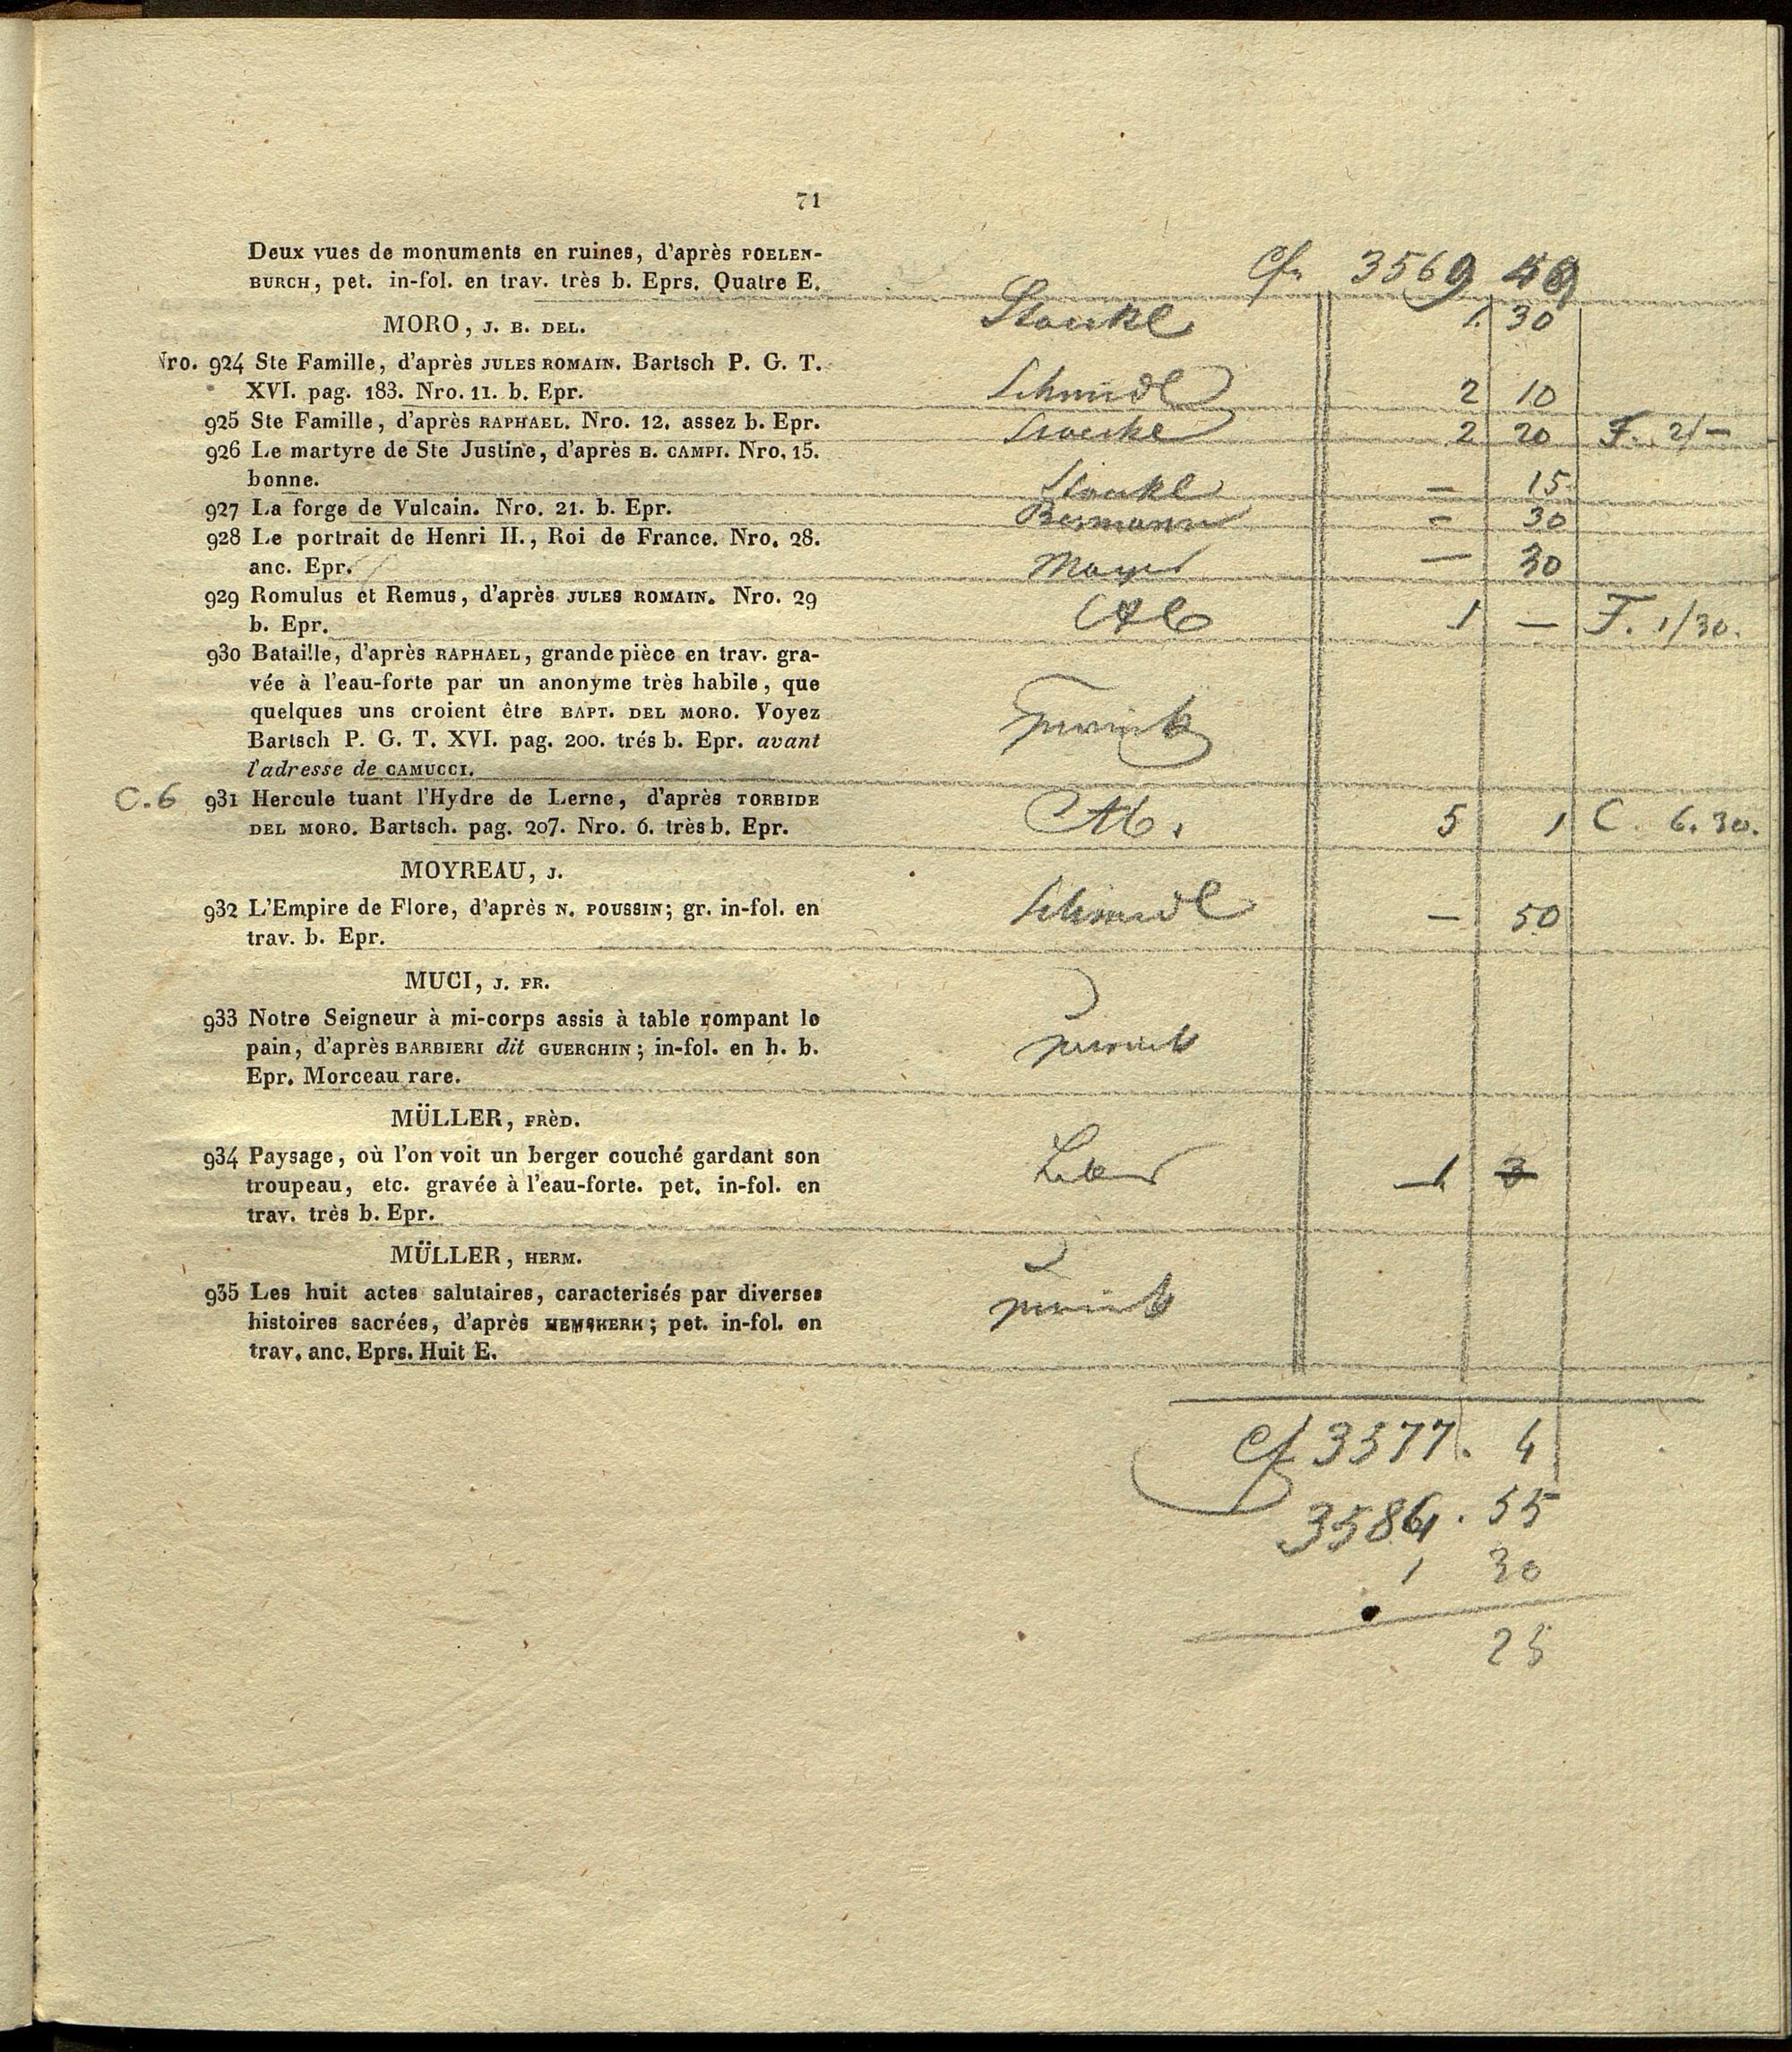 71
Deux vues de monuments en ruines, d'après POELEN-
BURCH, pet. in-fol. en trav. très b. Eprs. Quatre E.
3569 48
Stoeckl 1. 30
MORO, J. B. DEL.
Nro. 924 Ste Famille, d'après JULES ROMAIN. Bartsch P. G. T.
XVI. pag. 183. Nro. 11. b. Epr.
Schmidl 2 10
925 Ste Famille, d'après RAPHAEL. Nro. 12. assez b. Epr.
Stoeckl 2 20 F. 2/—
926 Le martyre de Ste Justine, d'après B. CAMPI. Nro. 15.
bonne.
Stoeckl — 15
927 La forge de Vulcain. Nro. 21. b. Epr.
Bermann — 30
928 Le portrait de Henri II., Roi de France. Nro. 28.
anc. Epr.
Mayer — 30
929 Romulus et Remus, d'après JULES ROMAIN. Nro. 29
b. Epr.
1 — F. 1/30.
930 Bataille, d'après RAPHAEL, grande pièce en trav. gra-
vée à l'eau-forte par un anonyme très habile, que
quelques uns croient être BAPT. DEL MORO. Voyez
Bartsch P. G. T. XVI. pag. 200. trés b. Epr. avant
l'adresse de CAMUCCI.
C. 6 931 Hercule tuant l'Hydre de Lerne, d'après TORBIDE
DEL MORO. Bartsch. pag. 207. Nro. 6. très b. Epr.
5 1 C. 6.30.
MOYREAU, J.
932 L'Empire de Flore, d'après N. POUSSIN; gr. in-fol. en
trav. b. Epr.
Schmidl — 50
MUCI, J. FR.
933 Notre Seigneur à mi-corps assis à table rompant le
pain, d'après BARBIERI dit GUERCHIN; in-fol. en h. b.
Epr. Morceau rare.
MÜLLER, FRÈD.
934 Paysage, où l'on voit un berger couché gardant son
troupeau, etc. gravée à l'eau-forte. pet. in-fol. en
trav. très b. Epr.
1 3
MÜLLER, HERM.
935 Les huit actes salutaires, caracterisés par diverses
histoires sacrées, d'après HEMSKERK; pet. in-fol. en
trav. anc. Eprs. Huit E.
3577. 4
3584. 55
1 30
25